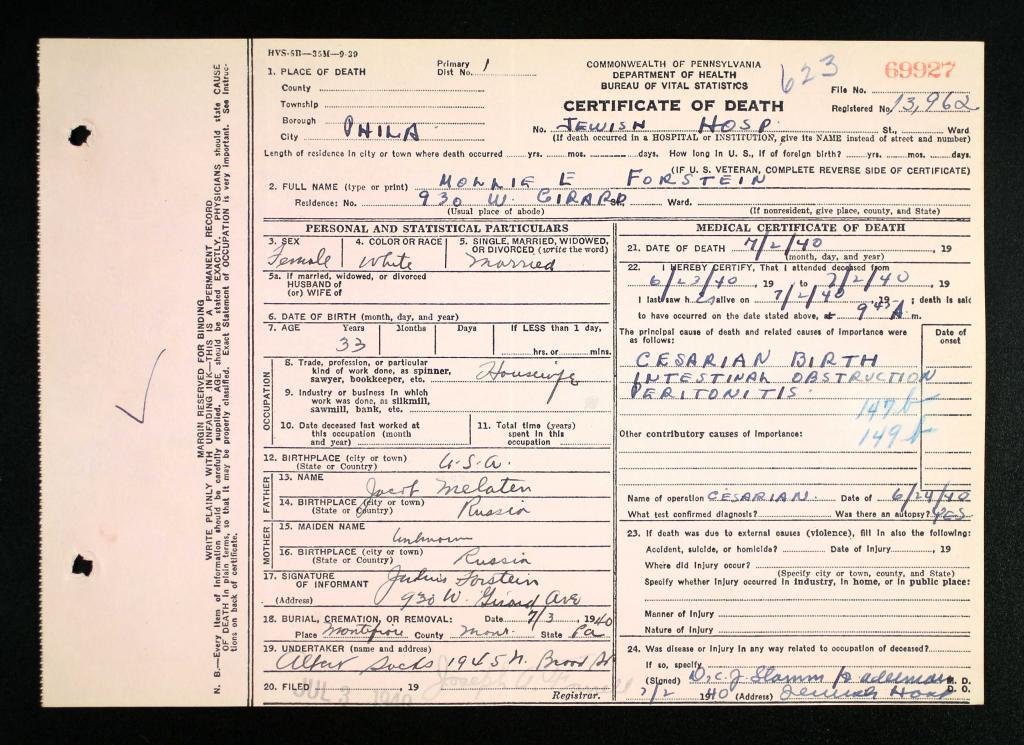 HVS-5B—35M—9-39
COMMONWEALTH OF PENNSYLVANIA
DEPARTMENT OF HEALTH
BUREAU OF VITAL STATISTICS
CERTIFICATE OF DEATH
623
69927
File No.
Registered No. 13,962
1. PLACE OF DEATH
Primary Dist No. 1
County
Township
Borough
City PHILA
No. JEWISH HOSP. St., Ward
(If death occurred in a HOSPITAL or INSTITUTION, give its NAME instead of street and number)
Length of residence in city or town where death occurred yrs. mos. days. How long in U. S., if of foreign birth? yrs. mos. days.
(IF U. S. VETERAN, COMPLETE REVERSE SIDE OF CERTIFICATE)
2. FULL NAME (type or print) MOLLIE E FORSTEIN
Residence: No. 930 W. GIRARD St. Ward.
(Usual place of abode) (If nonresident, give place, county, and State)
PERSONAL AND STATISTICAL PARTICULARS
3. SEX Female
4. COLOR OR RACE White
5. SINGLE, MARRIED, WIDOWED, OR DIVORCED (write the word) Married
5a. If married, widowed, or divorced
HUSBAND of
(or) WIFE of
6. DATE OF BIRTH (month, day, and year)
7. AGE Years Months Days If LESS than 1 day,
33 hrs. or mins.
OCCUPATION
8. Trade, profession, or particular kind of work done, as spinner, sawyer, bookkeeper, etc. Housewife
9. Industry or business in which work was done, as silkmill, sawmill, bank, etc.
10. Date deceased last worked at this occupation (month and year)
11. Total time (years) spent in this occupation
12. BIRTHPLACE (city or town) (State or Country) U.S.A.
FATHER
13. NAME Jacob Melaten
14. BIRTHPLACE (city or town) (State or Country) Russia
MOTHER
15. MAIDEN NAME Unknown
16. BIRTHPLACE (city or town) (State or Country) Russia
17. SIGNATURE OF INFORMANT Julius Forstein
(Address) 930 W. Girard Ave
18. BURIAL, CREMATION, OR REMOVAL: Date 7/3, 1940
Place Montefiore County Mont. State Pa
19. UNDERTAKER (name and address)
Albert Sacks 1945 N. Broad St
20. FILED JUL 3 1940 19
Registrar.
MEDICAL CERTIFICATE OF DEATH
21. DATE OF DEATH 7/2/40, 19
(month, day, and year)
22. I HEREBY CERTIFY, That I attended deceased from
6/23/40, 19 to 7/2/40, 19
I last saw h es alive on 7/2/40 19 ; death is said
to have occurred on the date stated above, at 9 45 A m.
The principal cause of death and related causes of importance were as follows:
Date of onset
CESARIAN BIRTH
INTESTINAL OBSTRUCTION
PERITONITIS
147 b
149 b
Other contributory causes of importance:
Name of operation CESARIAN. Date of 6/24/40
What test confirmed diagnosis? Was there an autopsy? YES
23. If death was due to external causes (violence), fill in also the following:
Accident, suicide, or homicide? Date of Injury, 19
Where did injury occur?
(Specify city or town, county, and State)
Specify whether Injury occurred in industry, in home, or in public place:
Manner of Injury
Nature of Injury
24. Was disease or injury in any way related to occupation of deceased?
If so, specify
(Signed) Dr. C. J. Stamm M. D.
D. O.
7/2 1940 (Address) Jewish Hosp
MARGIN RESERVED FOR BINDING
WRITE PLAINLY WITH UNFADING INK—THIS IS A PERMANENT RECORD
N. B.—Every item of information should be carefully supplied. AGE should be stated EXACTLY. PHYSICIANS should state CAUSE OF DEATH in plain terms, so that it may be properly classified. Exact Statement of OCCUPATION is very important. See instructions on back of certificate.